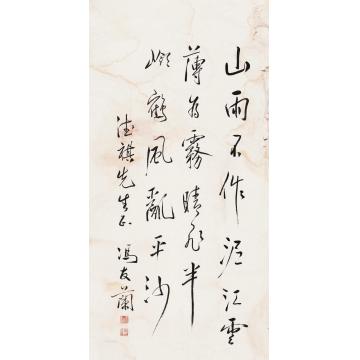 山雨不作泥江雲
薄為霧晴飛半
嶺鶴風亂平沙
德祺先生正 馮友蘭